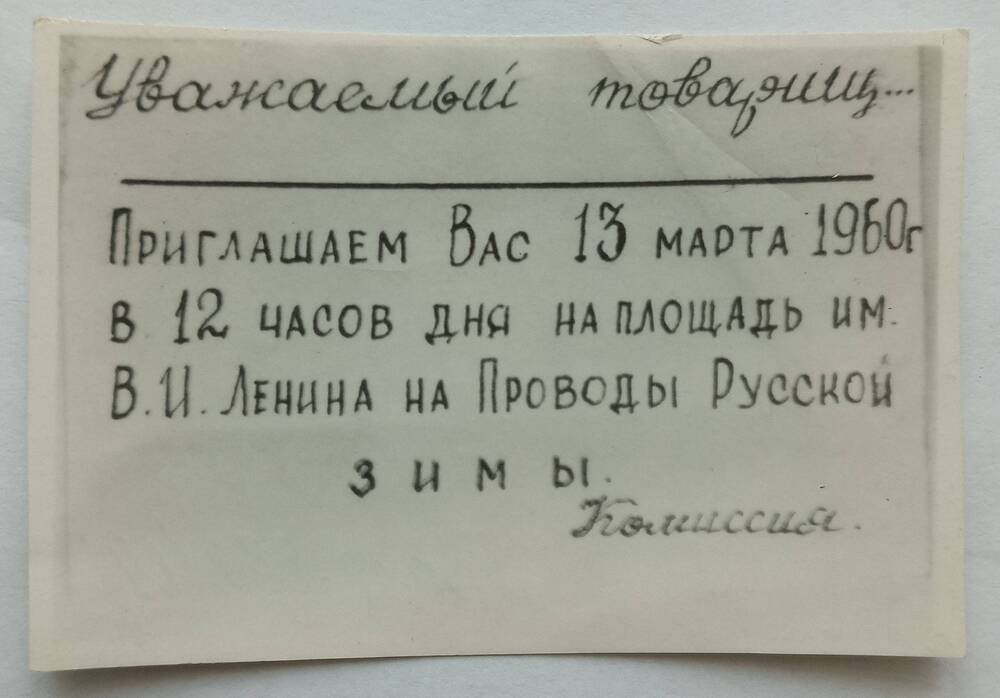 Уважаемый товарищ...
Приглашаем Вас 13 марта 1960г
в 12 часов дня на площадь им.
В.И. Ленина на Проводы Русской
зимы.
Комиссия.